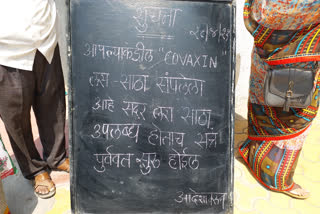 सुचना
आपल्याकडील "COVAXIN"
लस-साठा संपलेला
आहे सदर लस साठा
उपलब्ध होताच सत्र
पुर्ववत सुरू होईल